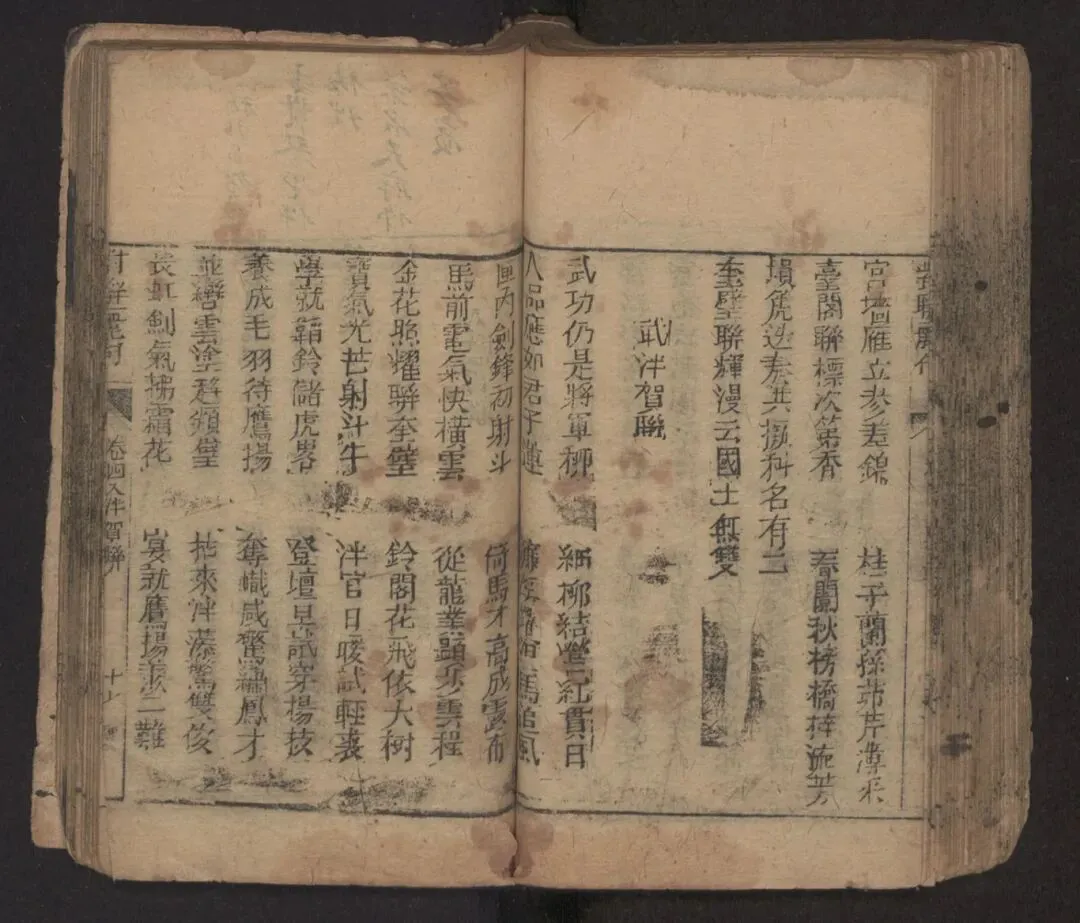 宮墻雁立參差錦 桂子蘭孫茆芹薄采
臺閣聯標次第香 春蘭秋榜橋梓流芳
塤箎迭奏共掇科名有二
奎璧聯輝漫云國士無雙
武泮賀聯
武功仍是將軍柳 細柳結營虹貫日
人品應如君子蓮
匣內劍鋒初射斗 倚馬才高成露布
馬前電氣快橫雲 從龍業顯步雲程
金花照耀聯奎璧 鈴閣花飛依大樹
寶氣光芒射斗牛 泮宮日暖試輕裘
學就韜鈐儲虎畧 登壇早試穿楊技
養成毛羽待鷹揚 奪幟咸驚翽鳳才
並轡雲塗移類璧 拈來泮藻驚雙俊
長虹劍氣拂霜花 宴就鷹揚羨二難
卷四入泮賀聯